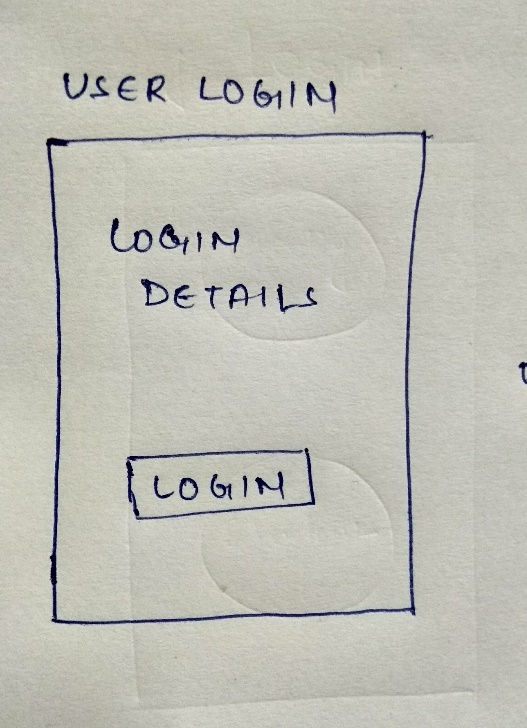 USER LOGIN
LOGIN
DETAILS
LOGIN